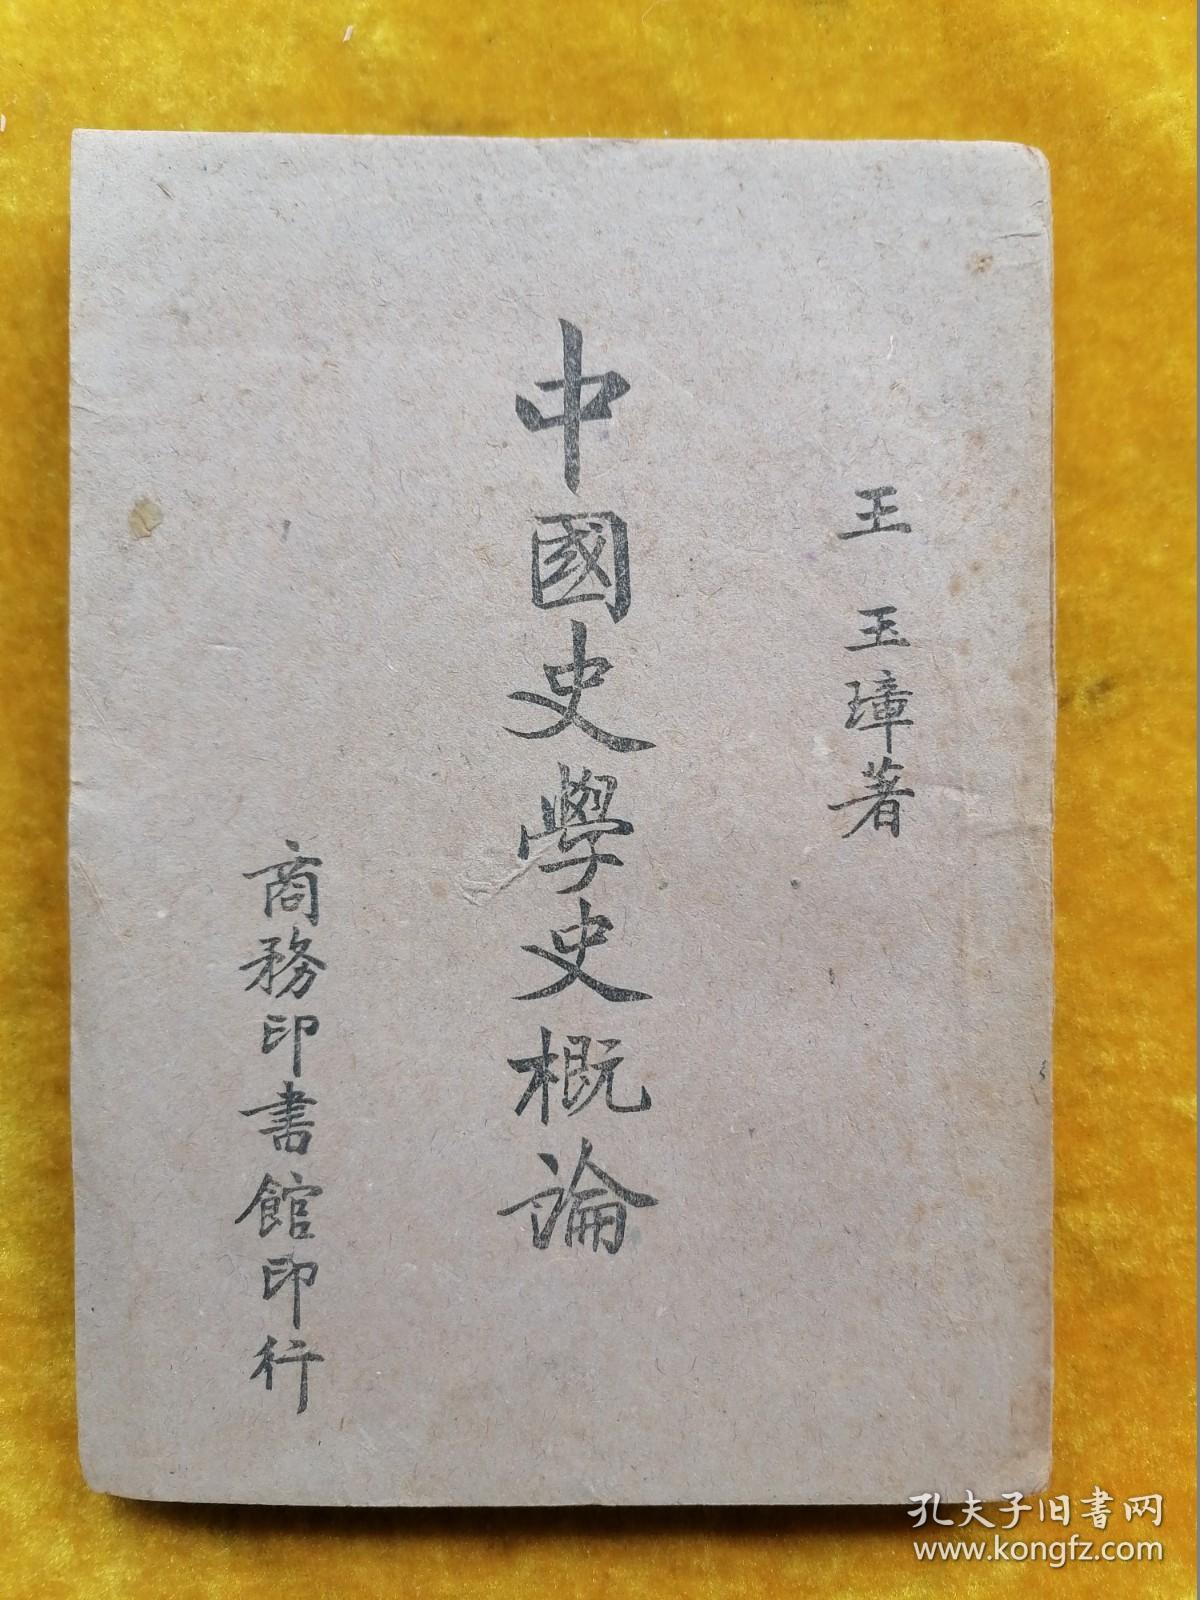 王玉璋著
中國史學史概論
商務印書館印行
孔夫子旧书网
www.kongfz.com